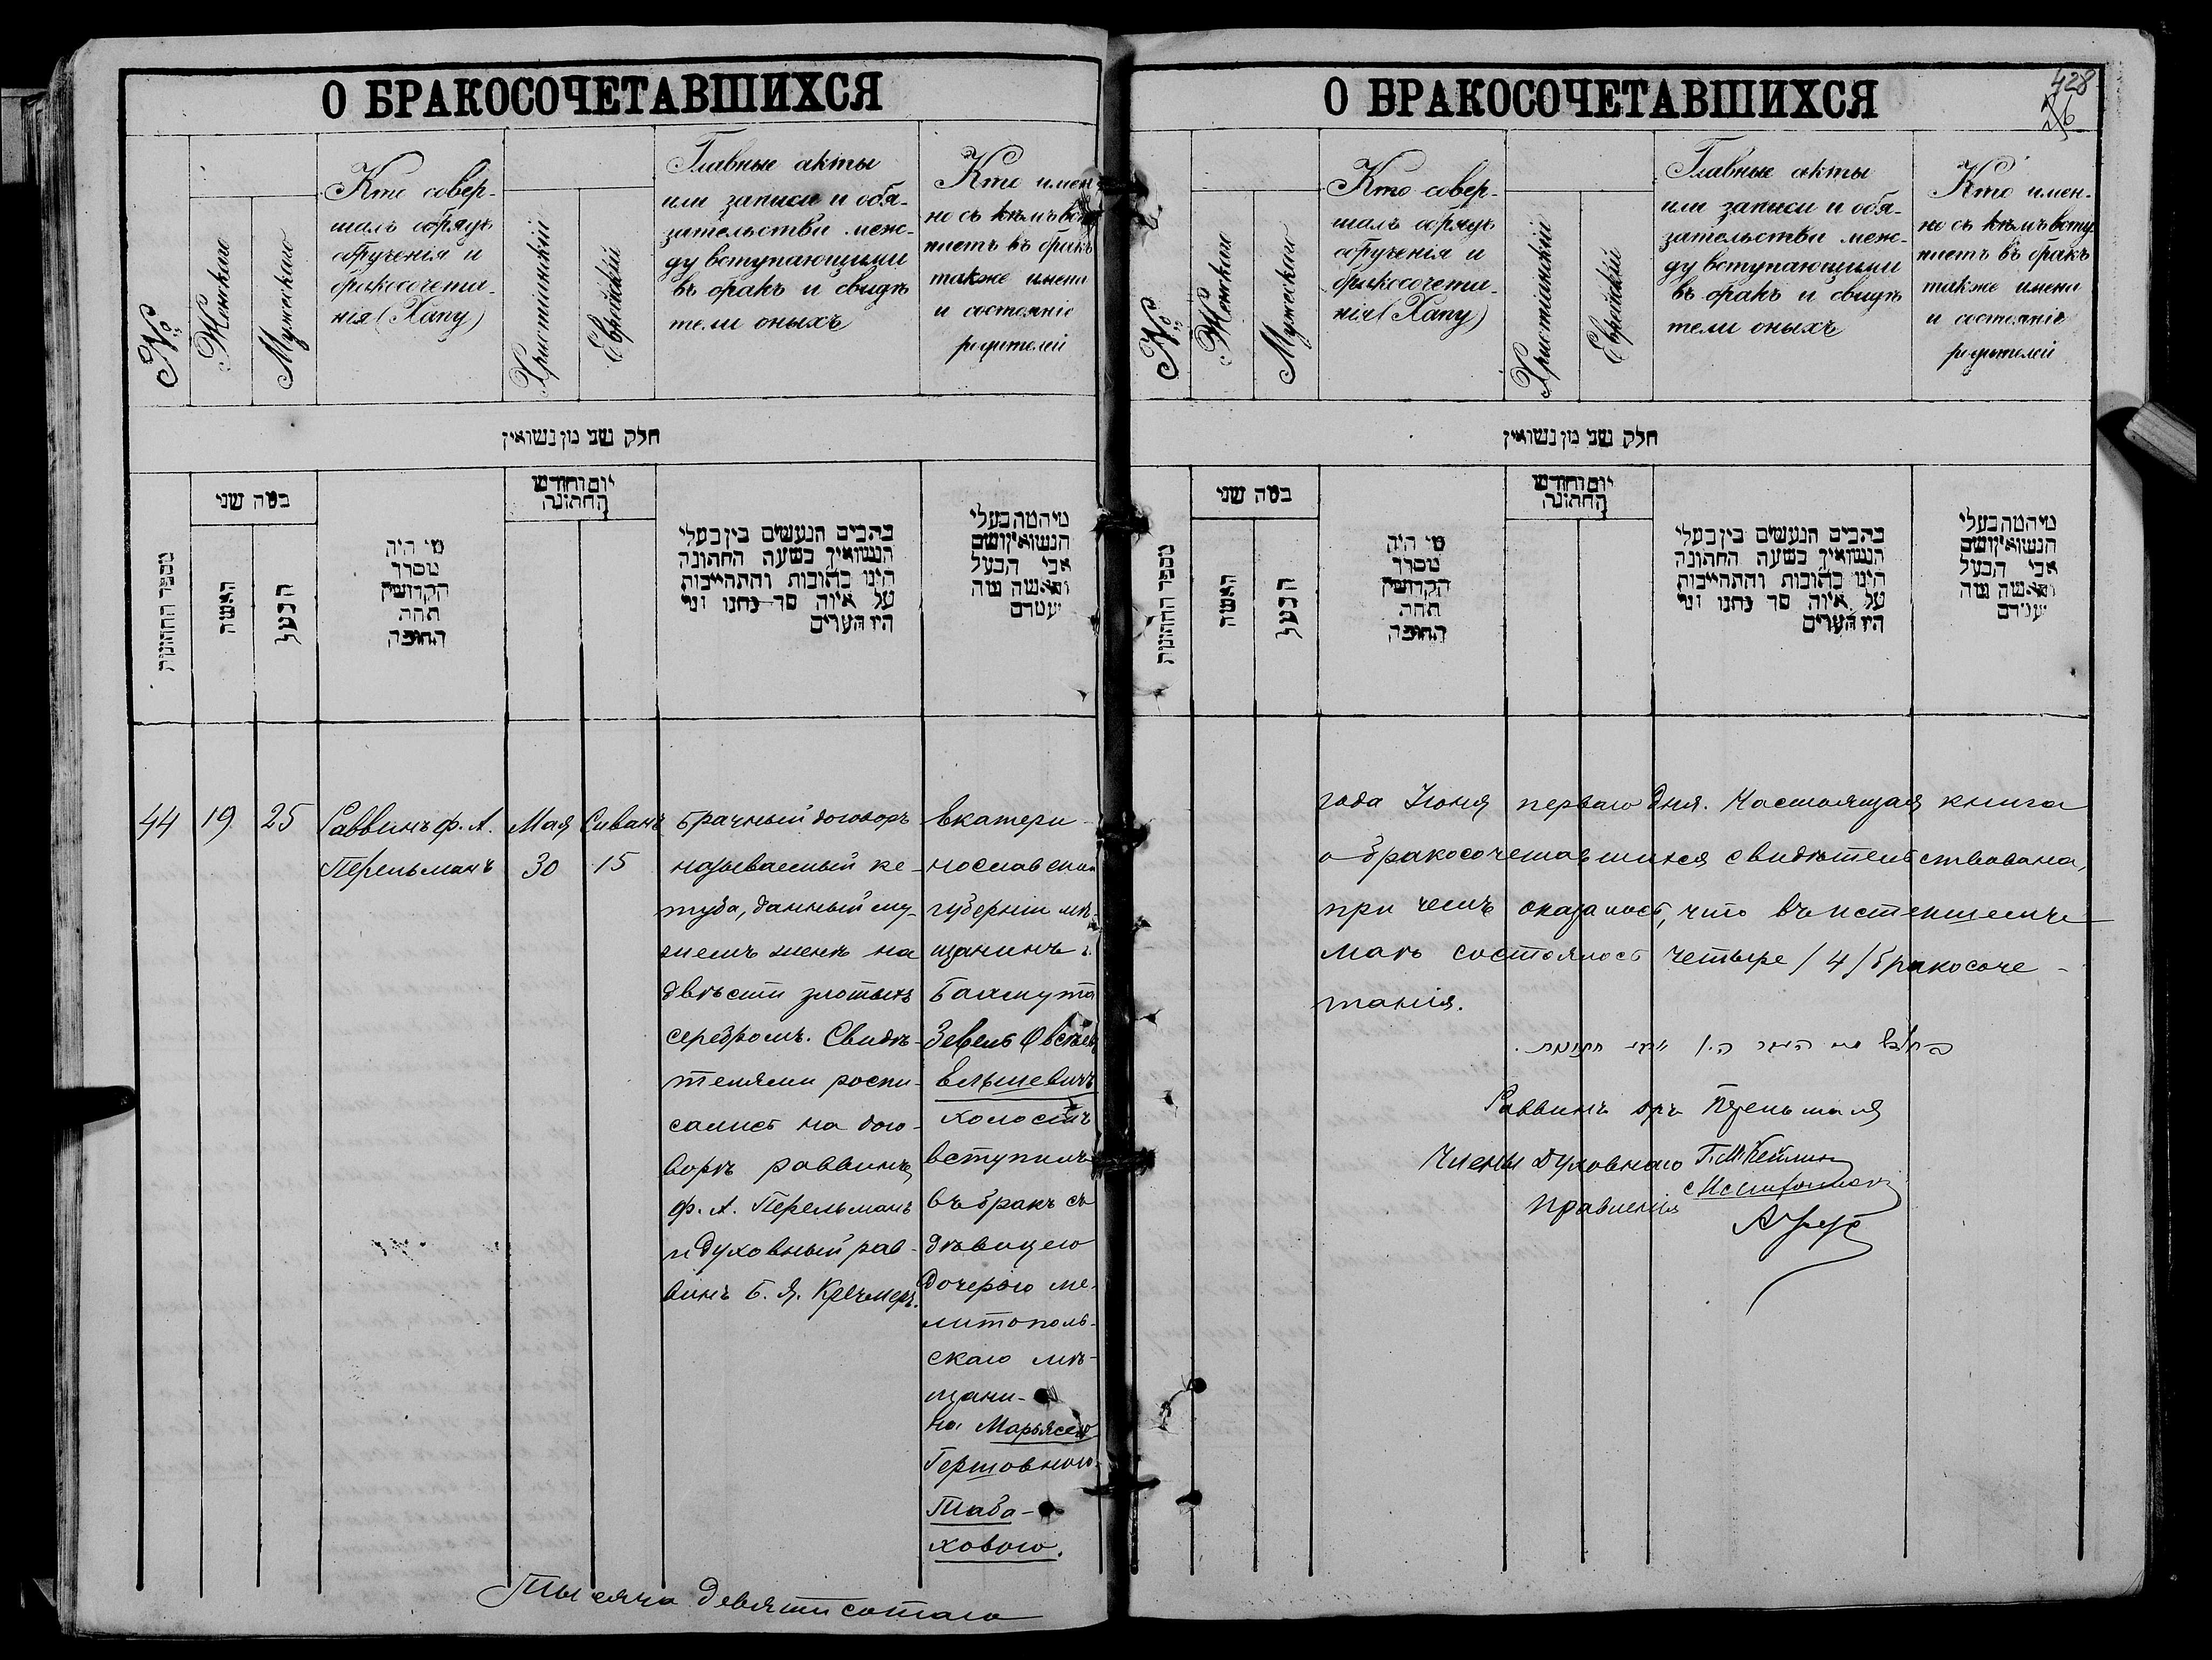 О БРАКОСОЧЕТАВШИХСЯ
№
Женскаго
Мужескаго
Кто совер-
шалъ обрядъ
обрученія и
бракосочета-
нія (Хапу)
Христіанскій
Еврейскій
Главные акты
или записи и обя-
зательства меж-
ду вступающими
въ бракъ и свидѣ
тели оныхъ
Кто имен
но съ кѣмъ всту
паетъ въ бракъ
также имена
и состояніе
родителей
חלק שני מן נשואין
מספר החתונות
במה שני
האשה
הבעל
מי היה
מסדר
הקדושין
תחת
החופה
יום וחודש
החתונה
כתבים הנעשים בין בעלי
הנשואין בשעה החתונה
היינו כתובות והתחייבות
על איזה סך נתנו ומי
היו העדים
מי המה בעלי
הנשואין ושם
אבי הבעל
והאשה מה
44
19
25
Раввинъ Ф. А.
Перельманъ
Мая
30
Сиванъ
15
Брачный договоръ
называемый ке-
туба, данный му-
жемъ женѣ на
двѣсти злотыхъ
серебромъ. Свидѣ-
телями роспи-
сались на дого-
ворѣ раввинъ
Ф. А. Перельманъ
и духовный рав-
винъ Б. Я. Кречмеръ.
Екатери-
нославской
губерніи мѣ-
щанинъ г.
Бахмута
Зевель Овсѣев
Ельшевичъ
холостъ
вступилъ
въ бракъ съ
дѣвицею
дочерью ме-
литополь-
скаго мѣ-
щани-
на Марьясею
Гершовною
Таба-
ховою.
Тысяча девятисотаго
О БРАКОСОЧЕТАВШИХСЯ
428
№
Женскаго
Мужескаго
Кто совер-
шалъ обрядъ
обрученія и
бракосочета-
нія (Хапу)
Христіанскій
Еврейскій
Главные акты
или записи и обя-
зательства меж-
ду вступающими
въ бракъ и свидѣ
тели оныхъ
Кто имен-
но съ кѣмъ всту
паетъ въ бракъ
также имена
и состояніе
родителей
חלק שני מן נשואין
מספר החתונות
במה שני
האשה
הבעל
מי היה
מסדר
הקדושין
תחת
החופה
יום וחודש
החתונה
כתבים הנעשים בין בעלי
הנשואין בשעה החתונה
היינו כתובות והתחייבות
על איזה סך נתנו ומי
היו העדים
מי המה בעלי
הנשואין ושם
אבי הבעל
והאשה מה
года Іюня перваго дня. Настоящая книга
о бракосочетавшихся свидѣтельствована,
при чемъ оказалось, что въ истекшемъ
маѣ состоялось четыре /4/ бракосоче-
танія.
Раввинъ Перельманъ
Члены Духовнаго
Правленія